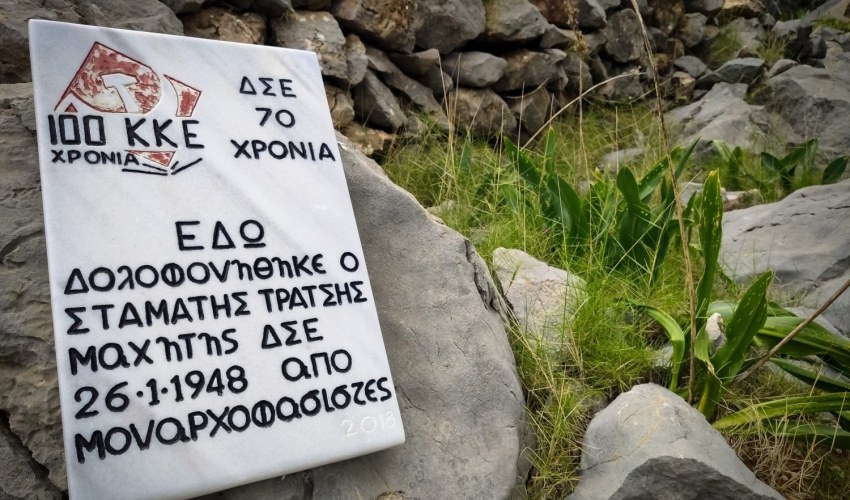 100 ΚΚΕ
ΧΡΟΝΙΑ
ΔΣΕ
70
ΧΡΟΝΙΑ
ΕΔΩ
ΔΟΛΟΦΟΝΗΘΗΚΕ Ο
ΣΤΑΜΑΤΗΣ ΤΡΑΤΣΗΣ
ΜΑΧΗΤΗΣ ΔΣΕ
26·1·1948 ΑΠΟ
ΜΟΝΑΡΧΟΦΑΣΙΣΤΕΣ
2018